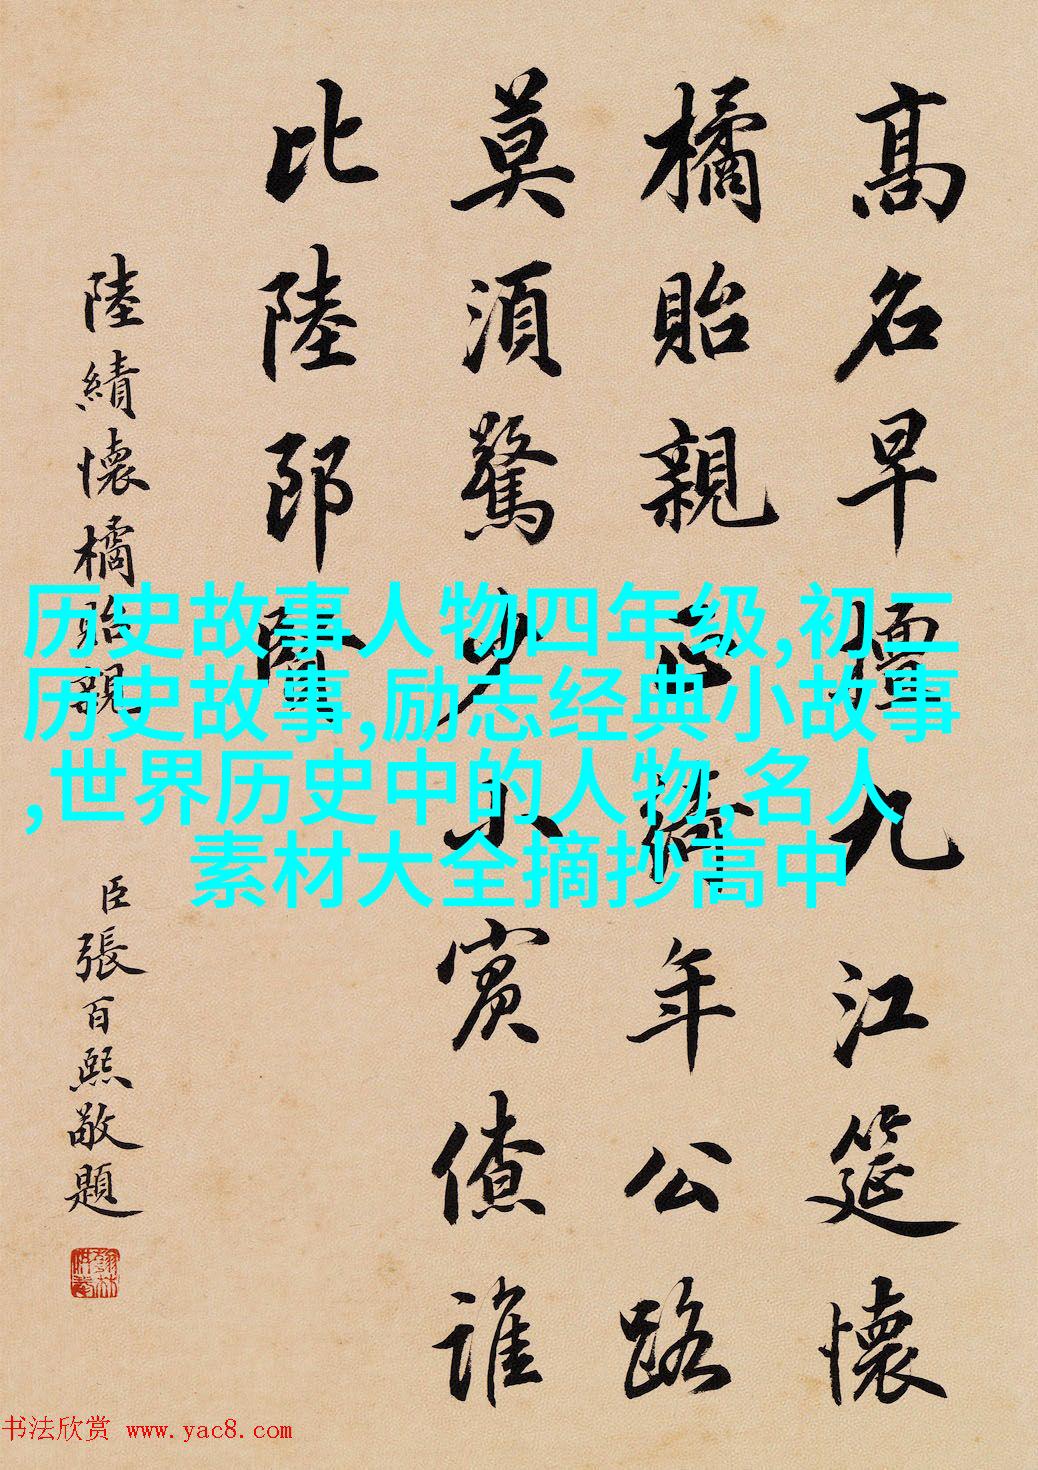 高名早擅九江筵懷
橘貽親正綺年公路
莫須驚少小賓僚誰
比陸郎賢
陸績懷橘貽親
臣張百熙敬題
历史故事人物四年级,初二
历史故事,励志经典小故事
,世界历史中的人物,名人
素材大全摘抄高中
书法欣赏 www.yac8.com